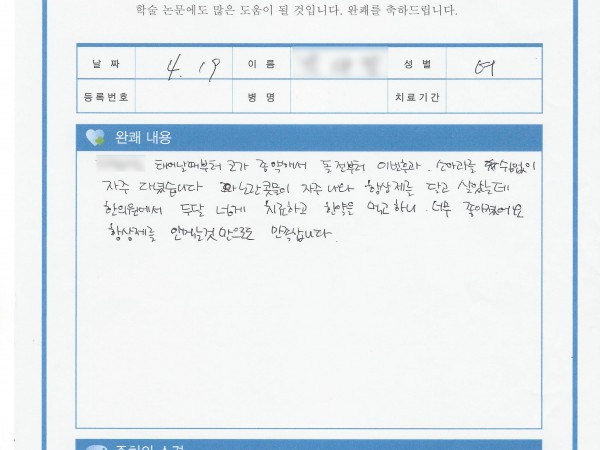 학술 논문에도 많은 도움이 될 것입니다. 완쾌를 축하드립니다.
날 짜 4. 19 이 름 성 별 여
등록번호 병 명 치료기간
완쾌 내용
태어날때부터 코가 좋약해서 돌 전부터 이빈후과. 소아과를 쉬없이
자주 다녔습니다 노란콧물이 자주 나와 항상제를 달고 살았는데
한의원에서 두달 넘게 치료하고 한약을 먹고하니 너무 좋아졌어요
항상제를 안먹는것 만으로도 만족합니다.